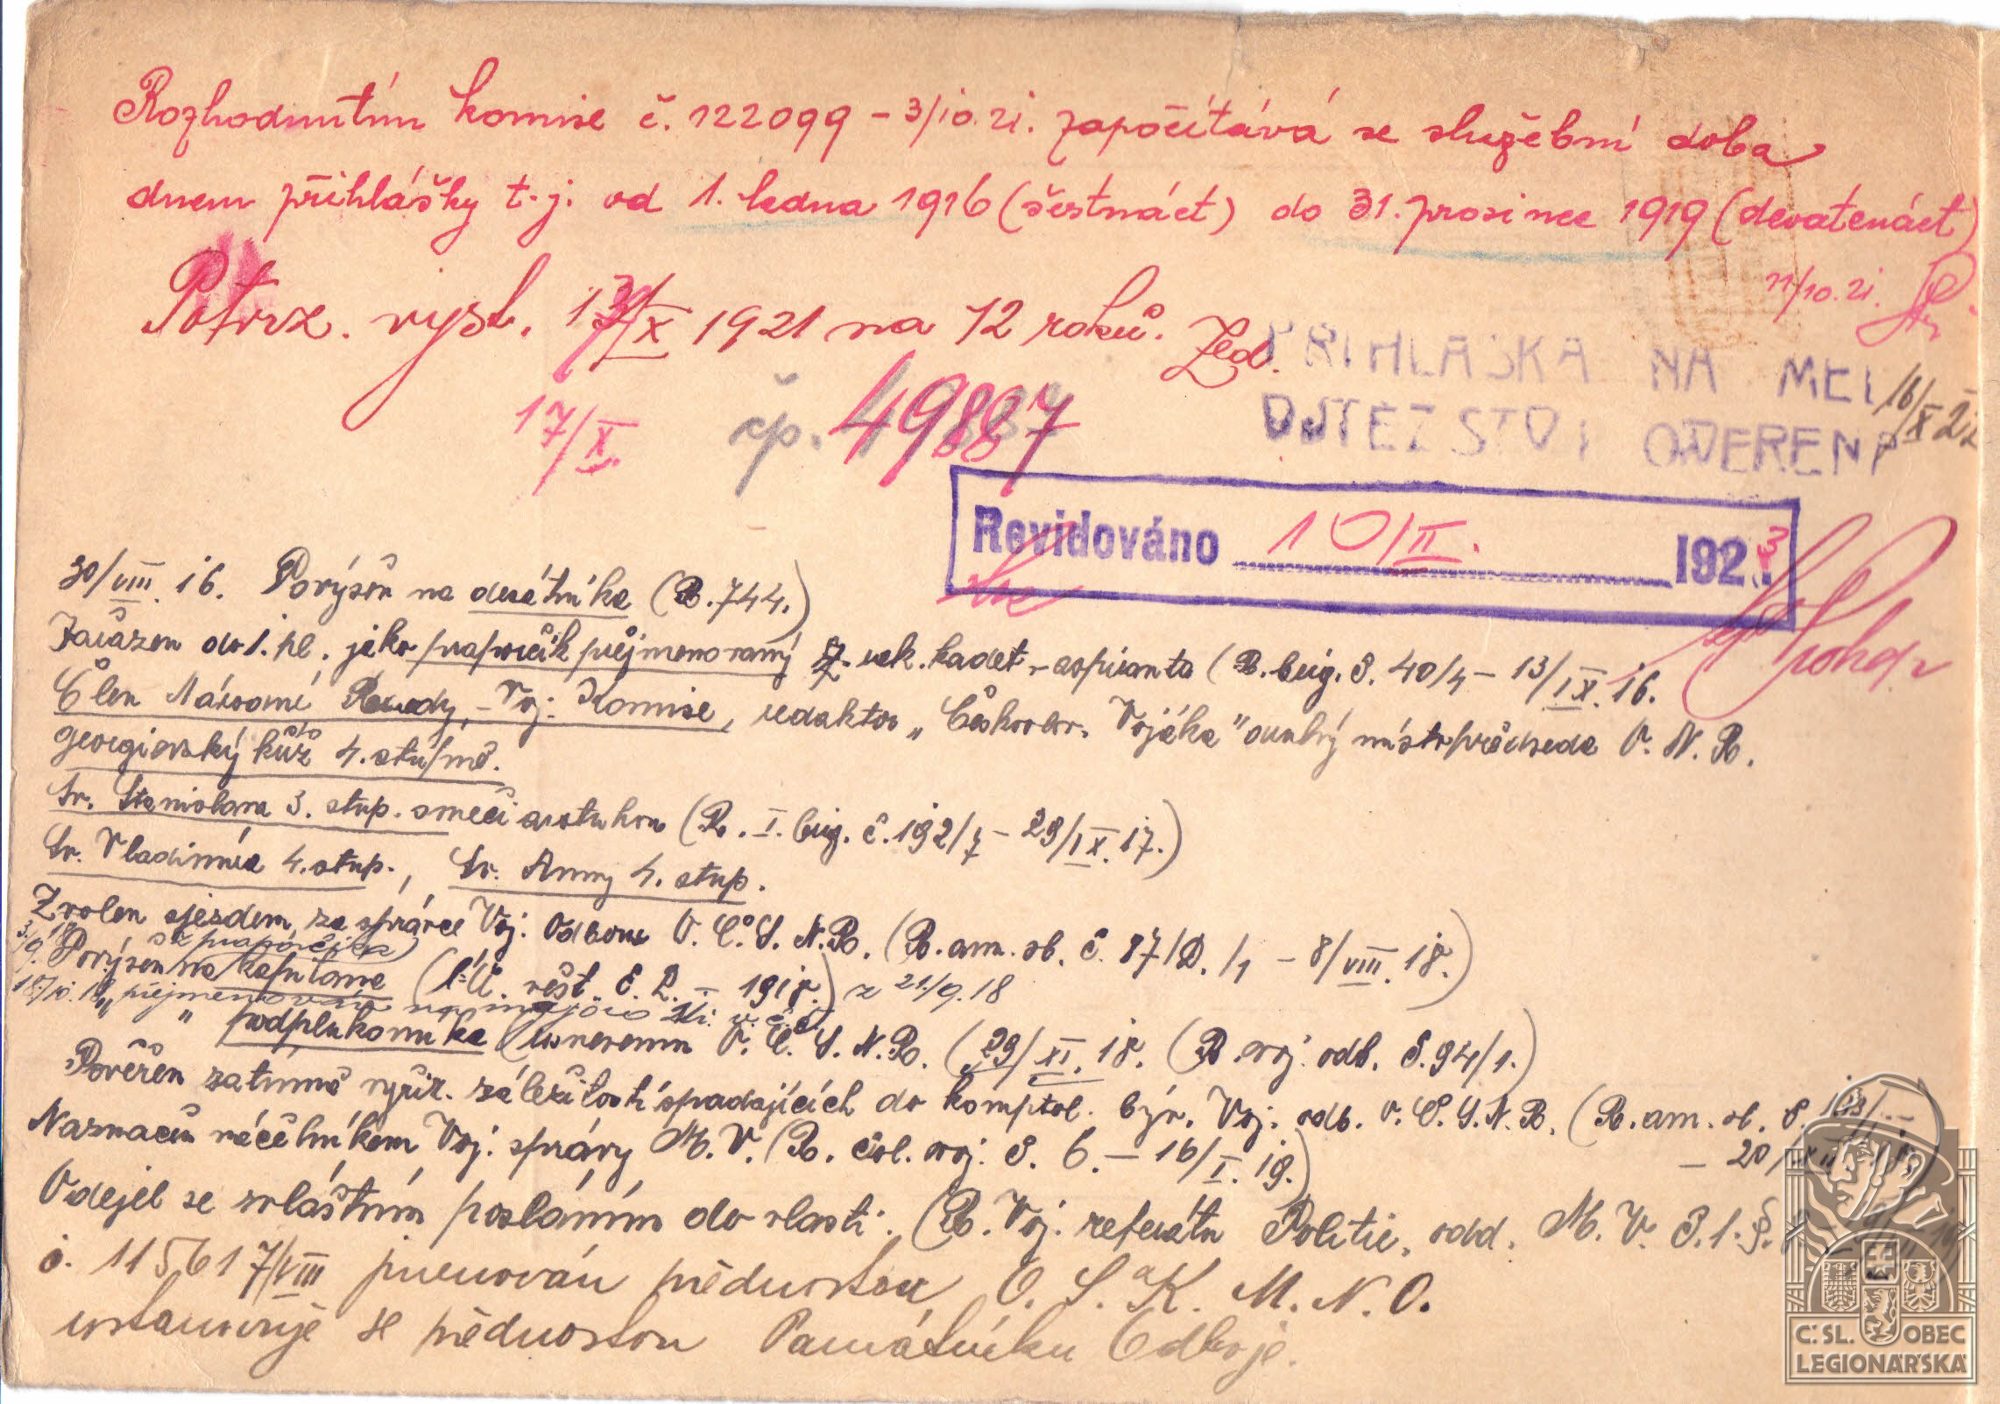 Rozhodnutím komise č. 122099 – 3/10.21. započítává se služební doba
dnem přihlášky t. j. od 1. ledna 1916 (šestnáct) do 31. prosince 1919 (devatenáct)
11/10.21.
Potvrz. vyst. 13/X 1921 na 12 roků.
PŘIHLÁŠKA NA MEI
DŮTEZSTVI OVĚŘENA
16/X 22
17/X. čp. 49887
Revidováno 10/II. 1923
30/VIII. 16. Povýšen na desátníka (R. 744.)
Zařazen do 1. pl. jako praporčík přejmenovaný z rak. kadet-aspiranta (R. brig. č. 40/4 – 13/IX. 16.
Člen Národní Rady, – Voj. Komise, redaktor „Českoslov. Vojáka" druhý místopředseda O. N. R.
georgievský kříž 4. stupně.
Sv. Stanislava 3. stup. s meči a stuhou (R. I. brig. č. 192/7 – 29/IX. 17.)
Sv. Vladimíra 4. stup., Sv. Anny 4. stup.
Zvolen sjezdem, za správce Voj. Odboru O. Č. S. N. R. (R. am. ob. č. 87/D. /1 – 8/VIII. 18.)
z praporčíka
Povýšen na kapitána 1918.) z 21/9. 18
přejmenován na majora
" podplukovníka (usnesením O. Č. S. N. R. (29/XI. 18. (R. voj. odb. č. 94/1.)
Pověřen zatímně vyříz. záležitostí spadajících do kompet. býv. Voj. odb. O. Č. S. N. R. (R. am. ob. č.
– 20/
Naznačen náčelníkem Voj. správy M. V. (R. čsl. voj. č. 6. – 16/I. 19.)
Odejel se zvláštním posláním do vlasti. (R. Voj. referátu Politic. odd. M. V. č. 1. §.
č. 11561 7/VIII jmenován přednostou O. S. a K. M. N. O.
ustanovuje se přednostou Památníku Odboje.
Č. SL. OBEC
LEGIONÁŘSKÁ